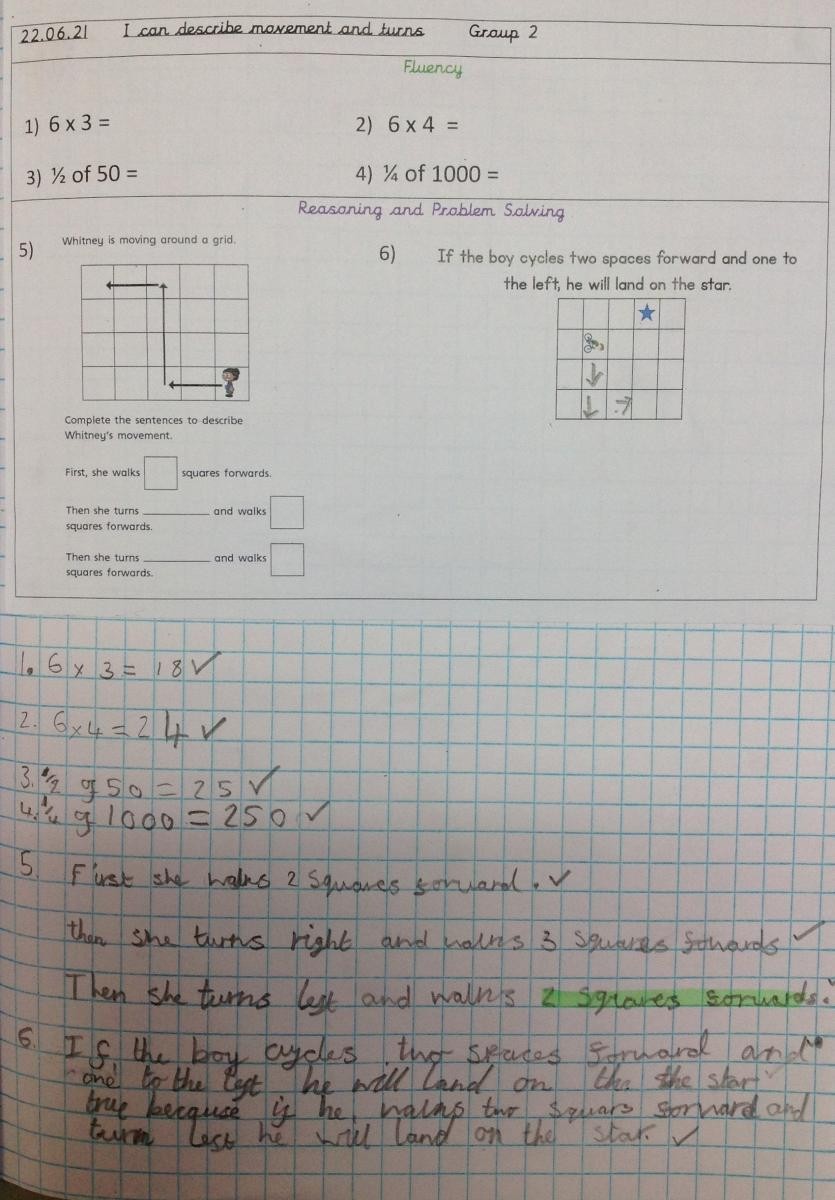 22.06.21 I can describe movement and turns Group 2
Fluency
1) 6 x 3 =
2) 6 x 4 =
3) ½ of 50 =
4) ¼ of 1000 =
Reasoning and Problem Solving
5)
Whitney is moving around a grid.
Complete the sentences to describe
Whitney's movement.
First, she walks squares forwards.
Then she turns ________ and walks
squares forwards.
Then she turns ________ and walks
squares forwards.
6)
If the boy cycles two spaces forward and one to
the left, he will land on the star.
1. 6 x 3 = 18 ✓
2. 6x4 = 24 ✓
3. 1/2 of 50 = 25 ✓
4. 1/4 of 1000 = 250 ✓
5. First she walks 2 squares forward. ✓
then she turns right and walks 3 squares fowards ✓
Then she turns left and walks 2 squares forwards.
6. If the boy cycles two spaces forward and
one to the left he will land on the the star
true because if he walks two squars forward and
turn left he will land on the star. ✓